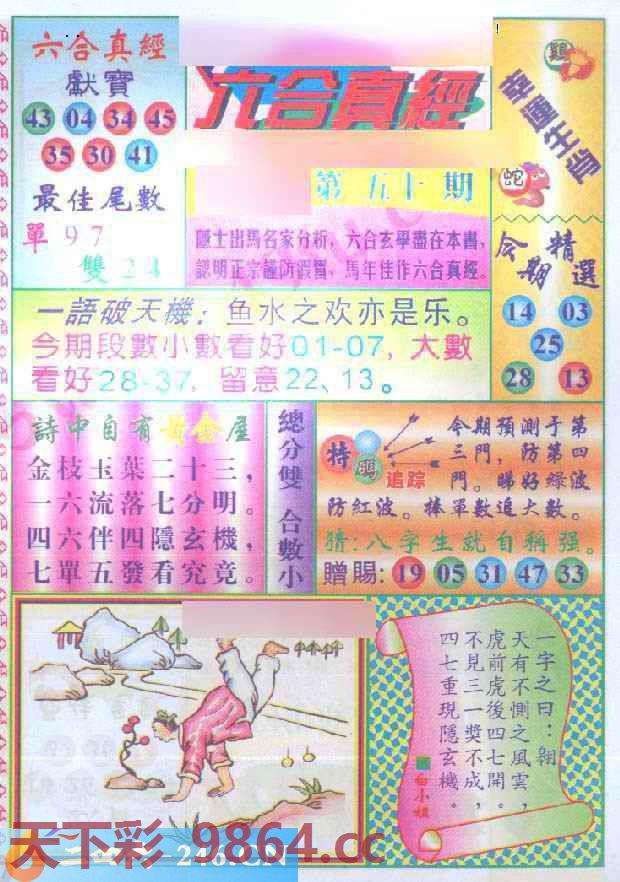 六合真經
獻寶
43 04 34 45
35 30 41
最佳尾數
單97
雙24
六合真經
第五十期
隱士出馬名家分析，六合玄學盡在本書，
認明正宗謹防假冒，馬年佳作六合真經。
雞
幸運生肖
蛇
今期精選
14 03
25
28 13
一語破天機：鱼水之欢亦是乐。
今期段數小數看好01-07，大數
看好28-37，留意22、13。
詩中自有黃金屋
金枝玉葉二十三，
一六流落七分明。
四六伴四隱玄機，
七單五發看究竟。
總分雙 合數小
特碼追踪
今期預測于第
三門，防第四
門。睇好綠波
防紅波。捧單數追大數。
猜：八字生就自稱强。
贈賜：19 05 31 47 33
一字之曰：翱
天有不惻之風雲，
虎前虎後四七開。
不見三一獎不成，
四七重現隱玄機。
白小姐
天下彩 9864.cc
246.CN